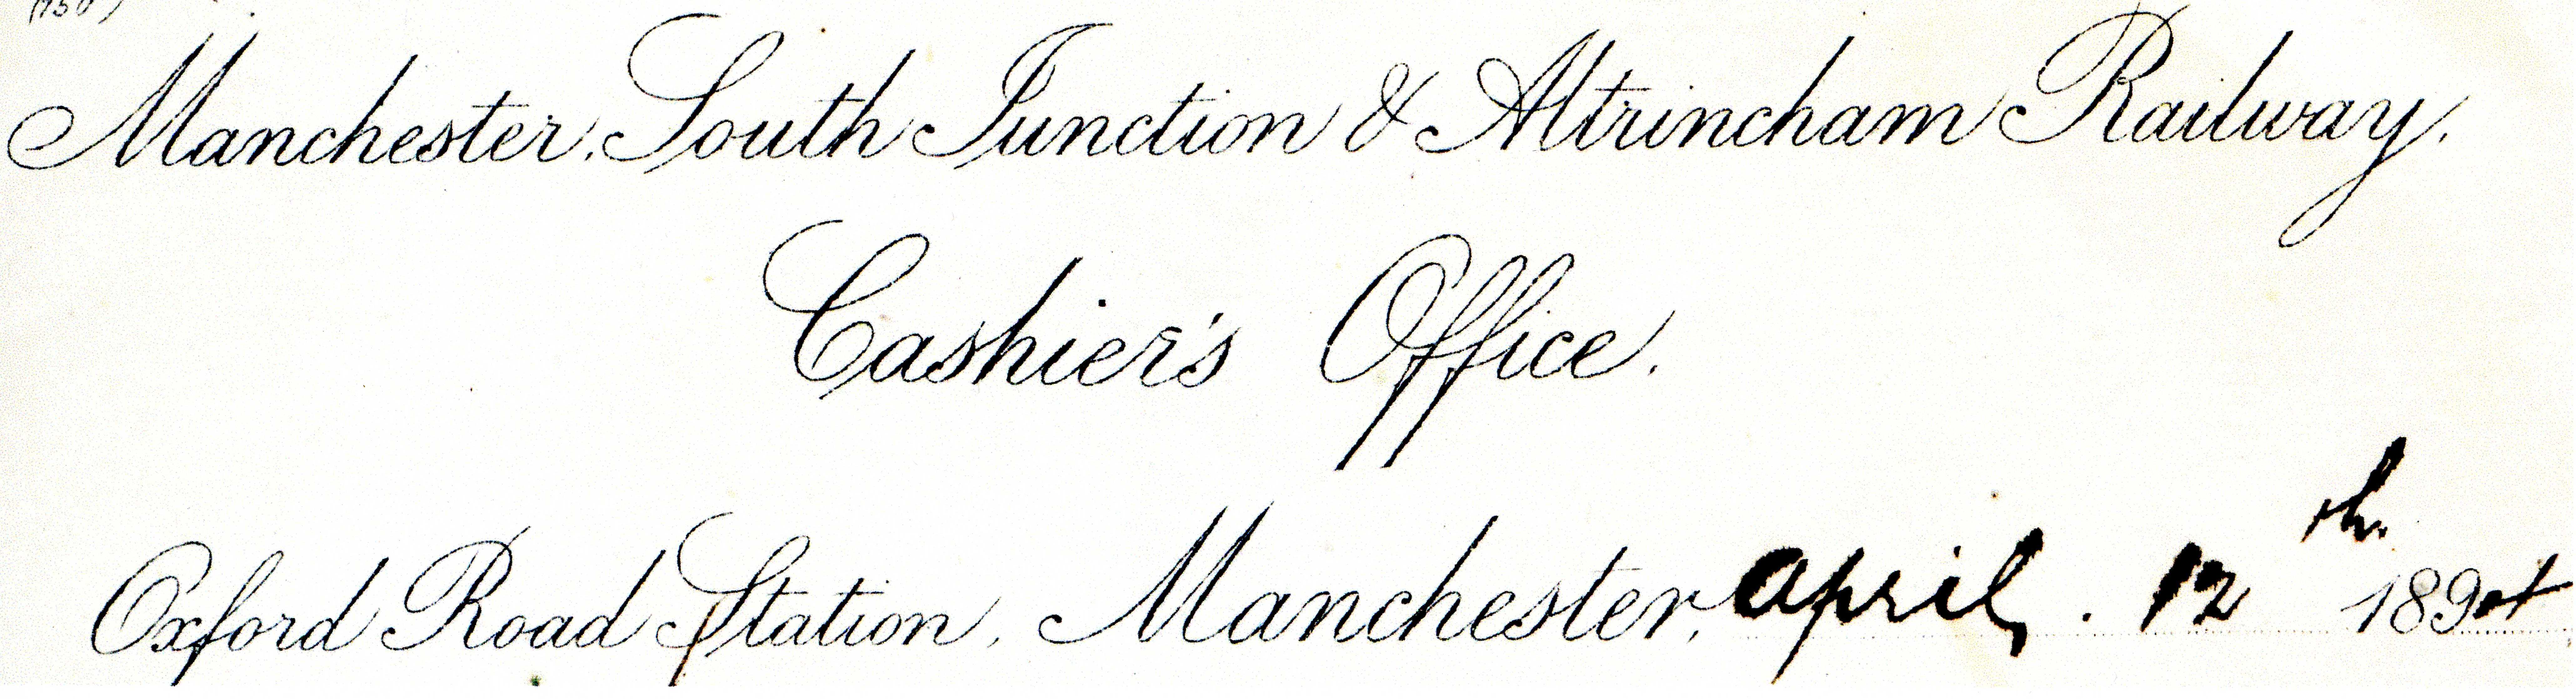 Manchester, South Junction & Altrincham Railway.
Cashier's Office.
Oxford Road Station, Manchester, April . 12th 1894